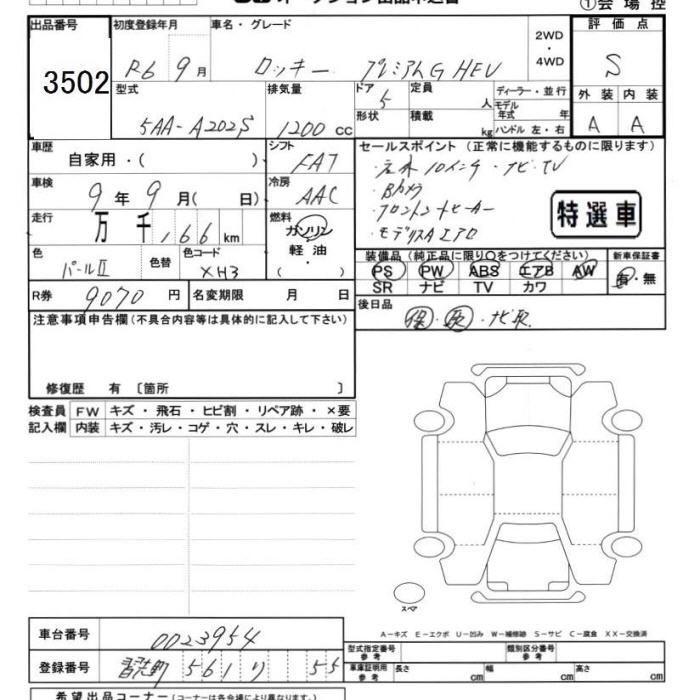 ①会場控
出品番号 初度登録年月 車名・グレード 2WD ・ 4WD 評価点
3502 R6 9月 ロッキー プレミアムG HEV S
型式 排気量 ドア 定員 ディーラー・並行 外装 内装
5AA-A202S 1200cc 5 人 モデル年式 年 A A
形状 積載 kg ハンドル 左・右
車歴 シフト セールスポイント (正常に機能するものに限ります)
自家用・( ) FA7
車検 冷房 ・ナビ・TV
9年9月( 日) AAC ・Bカメラ
走行 燃料 特選車
万 千 166km ガソリン 軽油 ( ) ・モデリスタエアロ
色 色替 色コード 装備品 (純正品に限り○をつけてください) 新車保証書
パールII XH3 PS PW ABS エアB AW 有・無
SR ナビ TV カワ
R券 9070円 名変期限 月 日 後日品
保・取・ナビ取
注意事項申告欄(不具合内容等は具体的に記入して下さい)
修復歴 有 〔箇所 〕
検査員 FW キズ・飛石・ヒビ割・リペア跡・×要
記入欄 内装 キズ・汚レ・コゲ・穴・スレ・キレ・破レ
スペア
A-キズ E-エクボ U-凹み W-補修跡 S-サビ C-腐食 XX-交換済
車台番号 0023954
型式指定番号 参考 類別区分番号 参考
登録番号 561 り 55
車庫証明用 参考 長さ cm 幅 cm 高さ cm
希望出品コーナー